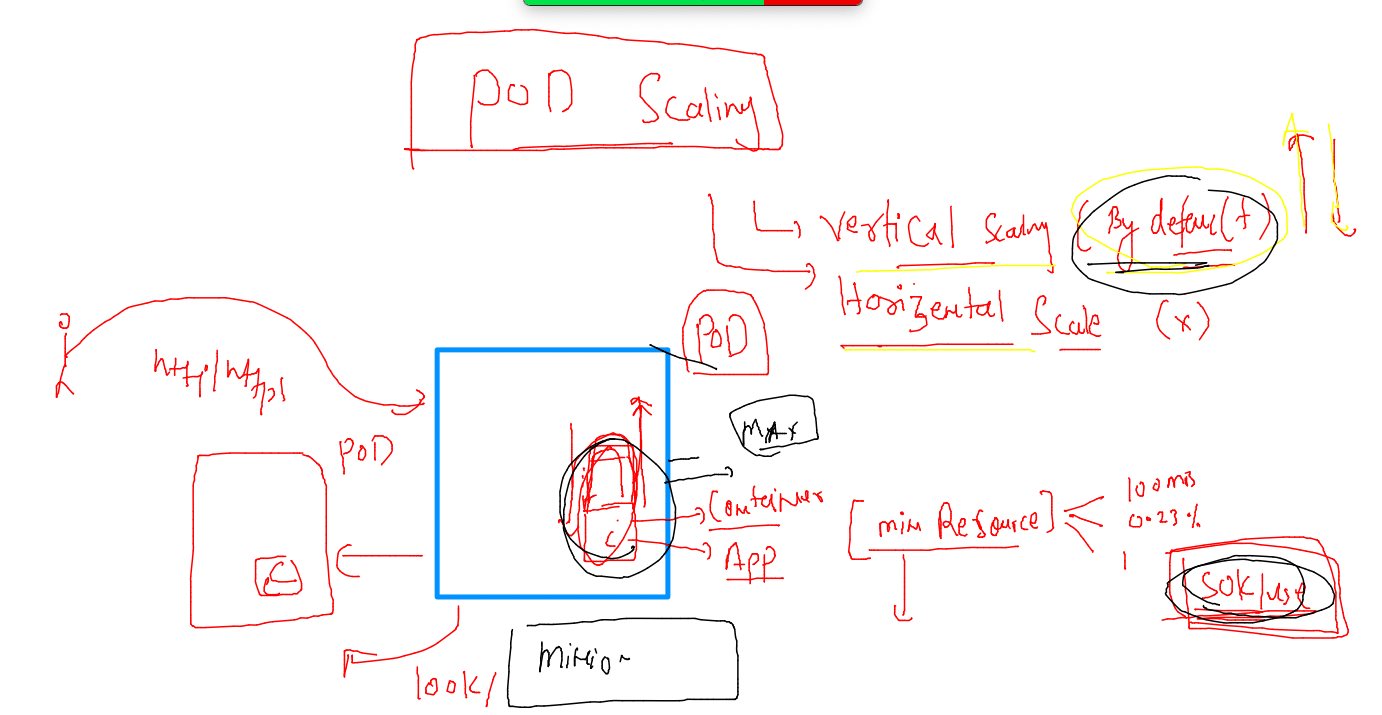 POD Scaling
Vertical Scaling (By default)
Horizental Scale (x)
POD
http/https
POD
MAX
Container
App
[min Resource]
100 mB
0.23%
1
50K/use
C
C
100K/
Minion